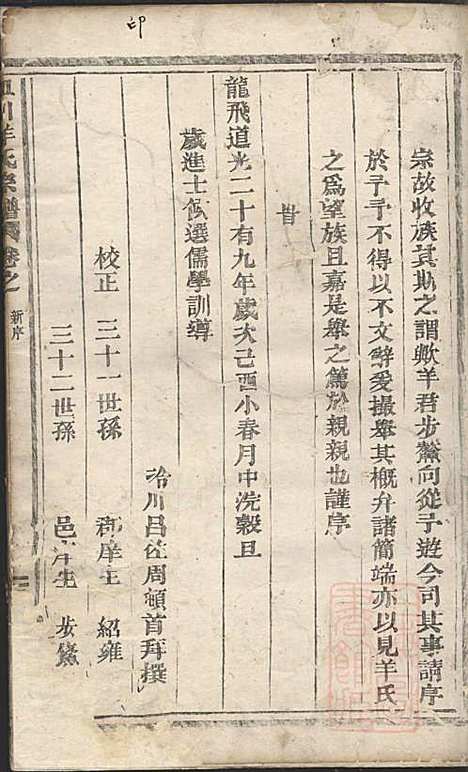 印
宗故收族其斯之謂歟羊君步鰲向從予遊今司其事請序
於予予不得以不文辭爰撮舉其概弁諸簡端亦以見羊氏
之爲望族且嘉是舉之篤於親親也謹序
旹
龍飛道光二十有九年歲次己酉小春月中浣穀旦
歲進士候選儒學訓導
呂佐周頓首拜撰
校正 三十一世孫 郡庠生 紹雍
三十二世孫 邑庠生 步鰲
羊氏宗譜 卷之一 新序